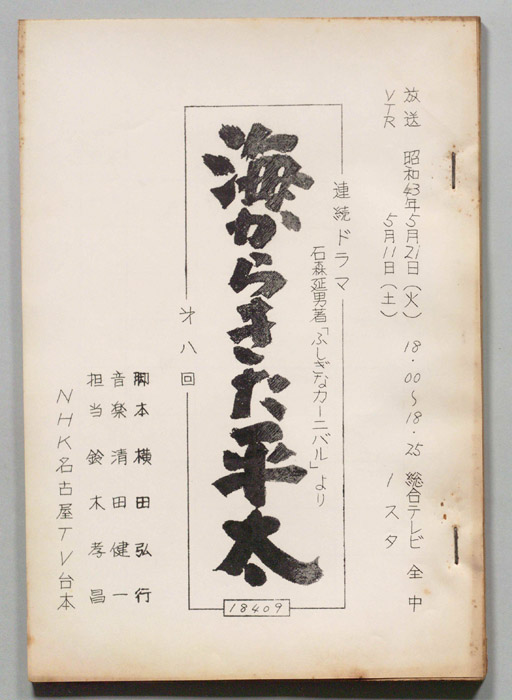 放送 昭和43年5月21日(火) 18.00〜18.25 総合テレビ 全中
VTR 5月11日(土) 1スタ
連続ドラマ
石森延男著「ふしぎなカーニバル」より
海からきた平太
第八回
脚本 横田弘行
音楽 清田健一
担当 鈴木孝昌
NHK名古屋TV台本
18409